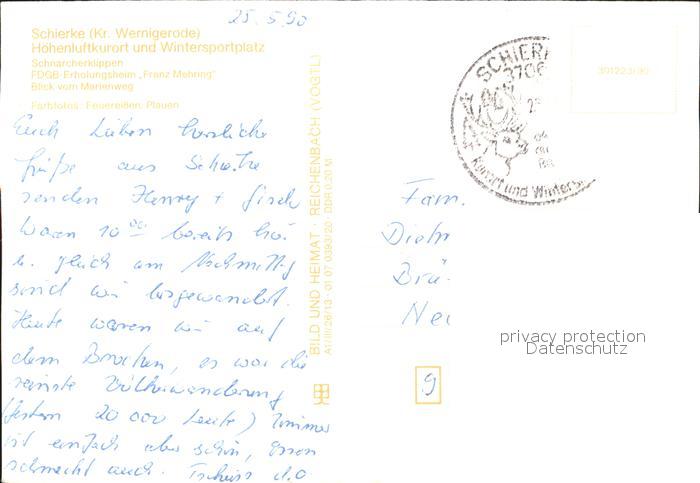 25.5.90
Schierke (Kr. Wernigerode)
Höhenluftkurort und Wintersportplatz
Schnarcherklippen
FDGB-Erholungsheim „Franz Mehring"
Blick vom Marienweg
Farbfotos: Feuereißen, Plauen
Euch Lieben herzliche
Grüße aus Schierke
senden Henry +
Waren 10 00 bereits hier
u. gleich am Nachmittag
sind wir losgewandert.
Heute waren wir auf
dem Brocken, es war die
reinste Völkerwanderung
(gestern 20 000 Leute) Zimmer
ist einfach aber schön, Essen
schmeckt auch. Tschüss d.O
BILD UND HEIMAT · REICHENBACH (VOGTL)
A1/III/26/13 · 01 07 0393/20 · DDR 0,20 M
SCHIERK
3706
Kurort und Winters
301223/90
Fam.
Dietr
Brü
Neu
9
privacy protection
Datenschutz